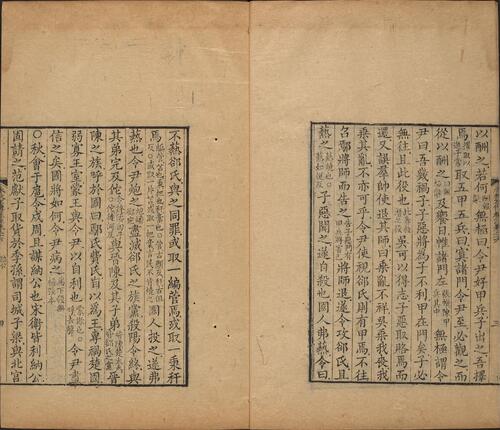 以酬之若何無極曰令尹好甲兵子出之吾擇
焉擇取以進子常取五甲五兵曰寘諸門令尹至必觀之而
從以酬之及饗日帷諸門左張帷陳甲兵其中無極謂令
尹曰吾幾禍子子惡將為子不利甲在門矣子必
無往且此役也此春救潛之役吳可以得志子惡取賂焉而
還又誤羣帥使退其師曰乘亂不祥吳乘我喪我
乘其亂不亦可乎令尹使視郤氏則有甲焉不往
召鄢將師而告之將師退遂令攻郤氏且
爇之爇燒也子惡聞之遂自殺也國人弗爇令曰
不爇郤氏與之同罪或取一編菅焉或取一秉秆
焉編菅苫也秉把也秆稾也國人投之遂弗
爇也令尹炮之盡滅郤氏之族黨殺陽令終與
其弟完及佗令終陽匄子與晉陳及其子弟晉陳楚大夫皆郤氏黨晉
陳之族呼於國曰鄢氏費氏自以為王專禍楚國
弱寡王室蒙王與令尹以自利也蒙欺也令尹盡
信之矣國將如何令尹病之為下殺無極張本
○秋會于扈令戍周且謀納公也宋衛皆利納公
固請之范獻子取貨於季孫謂司城子梁與北宮